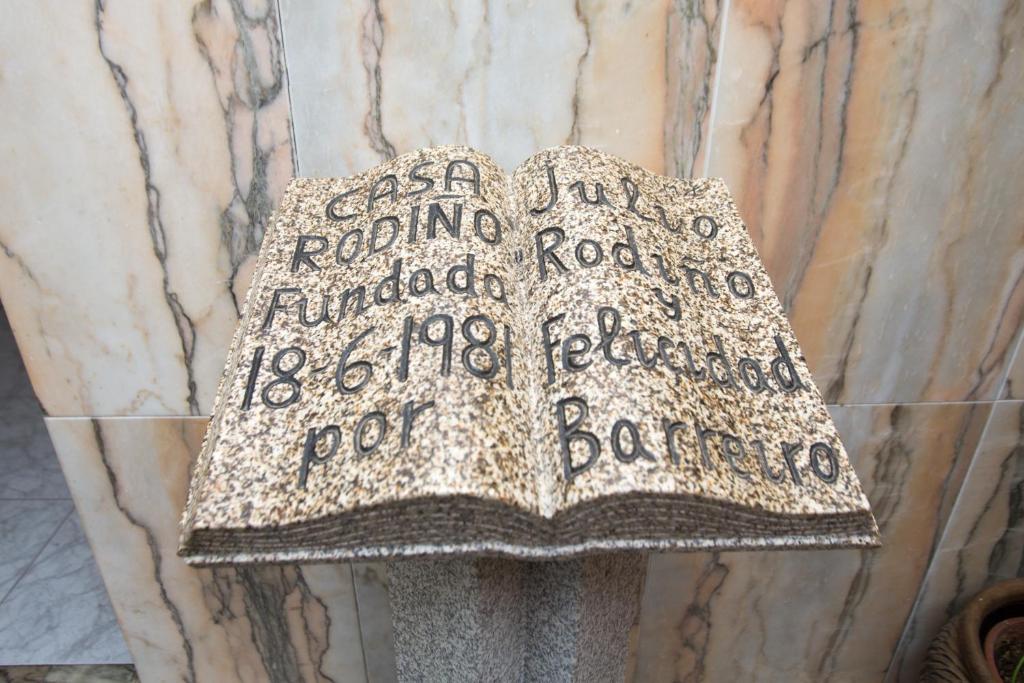 CASA
RODIÑO
Fundada
18-6-1981
por
Julio
Rodiño
y
Felicidad
Barreiro